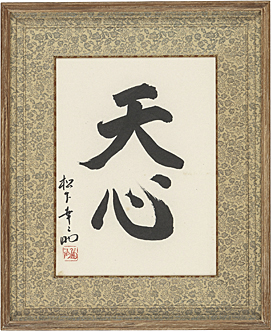 天心
松下幸之助